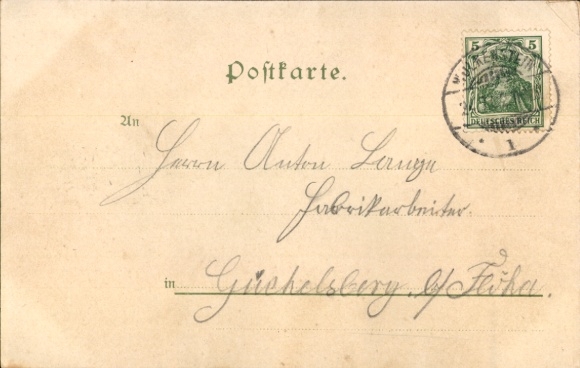 Postkarte.
5 5
DEUTSCHES REICH
1
An
Herrn Anton Lange
Fabrikarbeiter.
in Gückelsberg b/ Flöha.